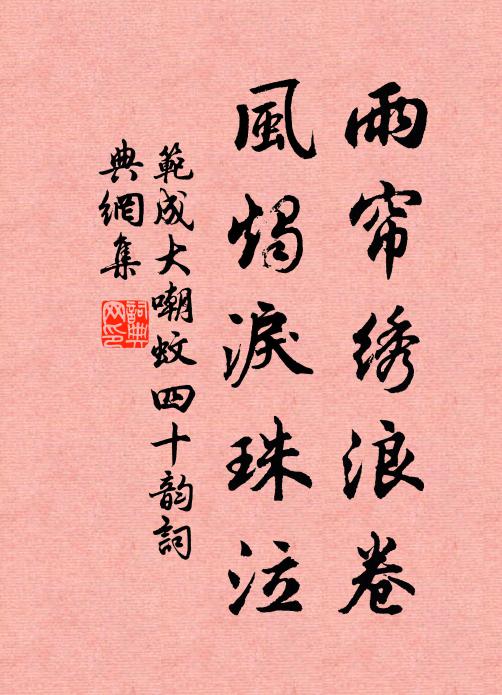 雨帘绣浪卷
風燭淚珠泣
範成大嘲蚊四十韵詞
典網集
詞典网印